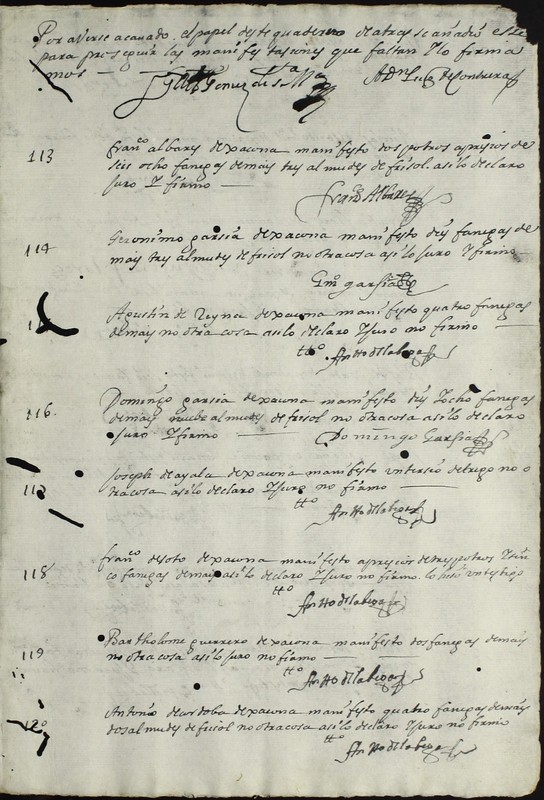 Por averse acavado el papel deste quaderno de atras se añadio este
para proseguir las manifestasiones que faltan y lo firma
mos
113
franco albares de xacona manifesto dos potros apresios de
seis ocho fanegas de mais tres almudes de frisol asi lo declaro
juro y firmo
Franco Albares
114
Geronimo garsia de xacona manifesto dies fanegas de
mais tres almudes de frisol no otra cosa asi lo juro y firmo
Gmo garsia
Agustin de Reyna de xacona manifesto quatro fanegas
de mais no otra cosa asi lo declaro y juro no firmo
tto Antto de la bega
116
Domingo garsia de xacona manifesto dies y ocho fanegas
de mais nuebe almudes de frisol no otra cosa asi lo declaro
juro y firmo
Domingo Garsia
Joseph de ayala de xacona manifesto un tersio de trigo no o
tra cosa asi lo declaro y juro no firmo
tto Antto de la bega
118
franco de soto de xacona manifesto apresios de tres potros y sin
co fanegas de mais asi lo declaro y juro no firmo lo hiso un testigo
tto
Antto de la bega
119
Bartholome guerrero de xacona manifesto dos fanegas de mais
no otra cosa asi lo juro no firmo
tto
Antto de la bega
120
Antonio de cordoba de xacona manifesto quatro fanegas de mais
dos almudes de frisol no otra cosa asi lo declaro y juro no firmo
tto
Antto de la bega